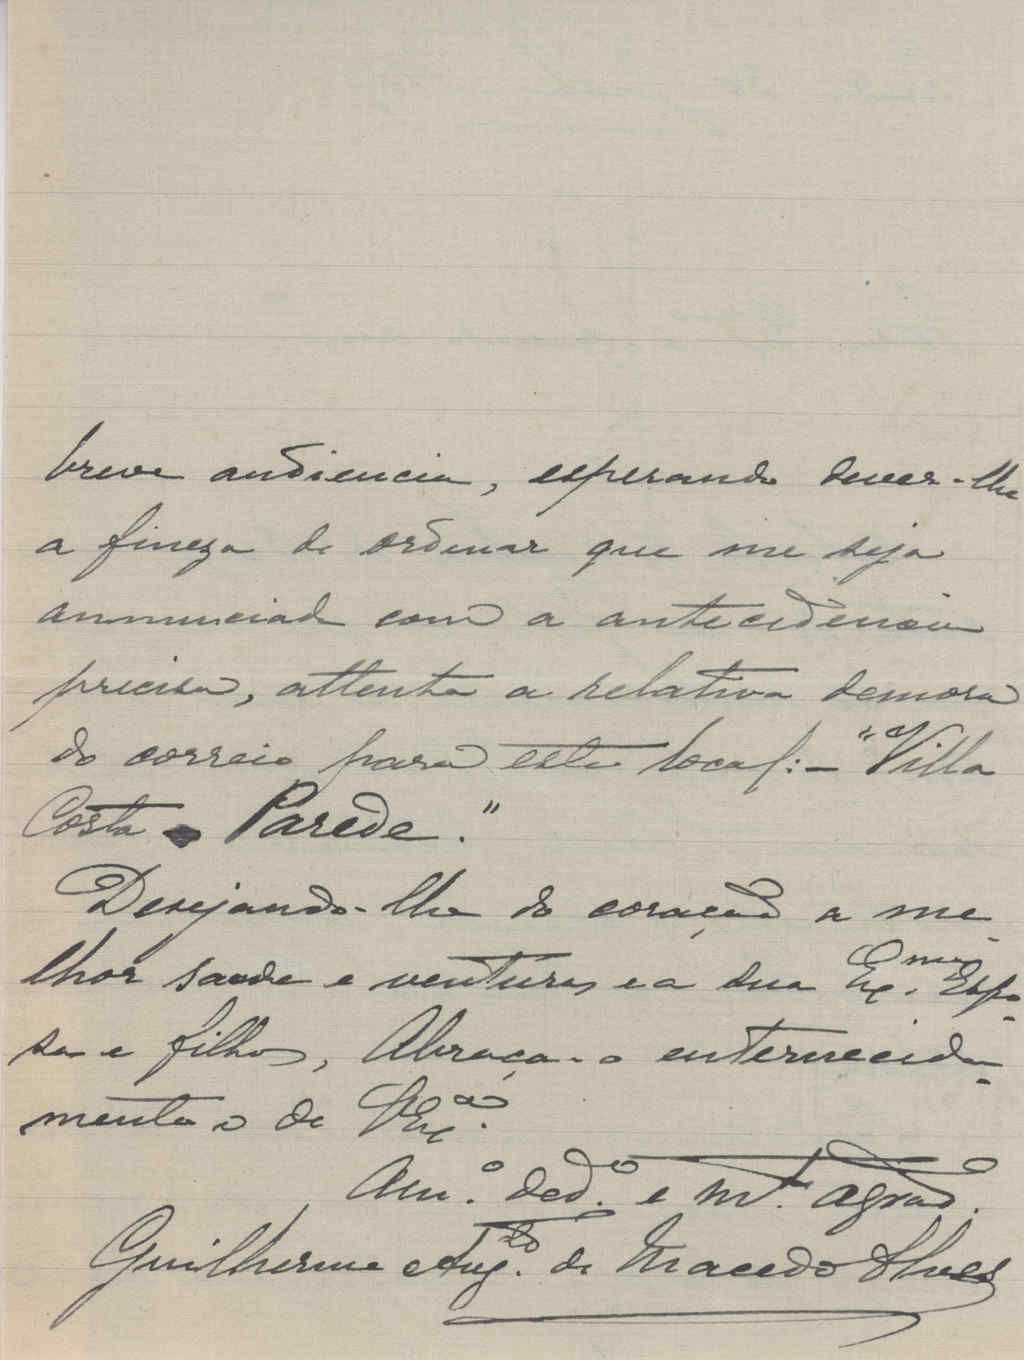 breve audiencia, esperando dever-lhe
a fineza de ordenar que me seja
annunciada com a antecedencia
precisa, attenta a relativa demora
do correio para este local:- "Villa
Costa - Parede."
Desejando-lhe do coração a me-
lhor saude e venturas e a sua Exma. Espo-
sa e filhos, Abraça-o enternecida-
mente o de V. Exa.
Am.o ded.o e mt.o agrad.o
Guilherme Aug.to de Macedo Alves